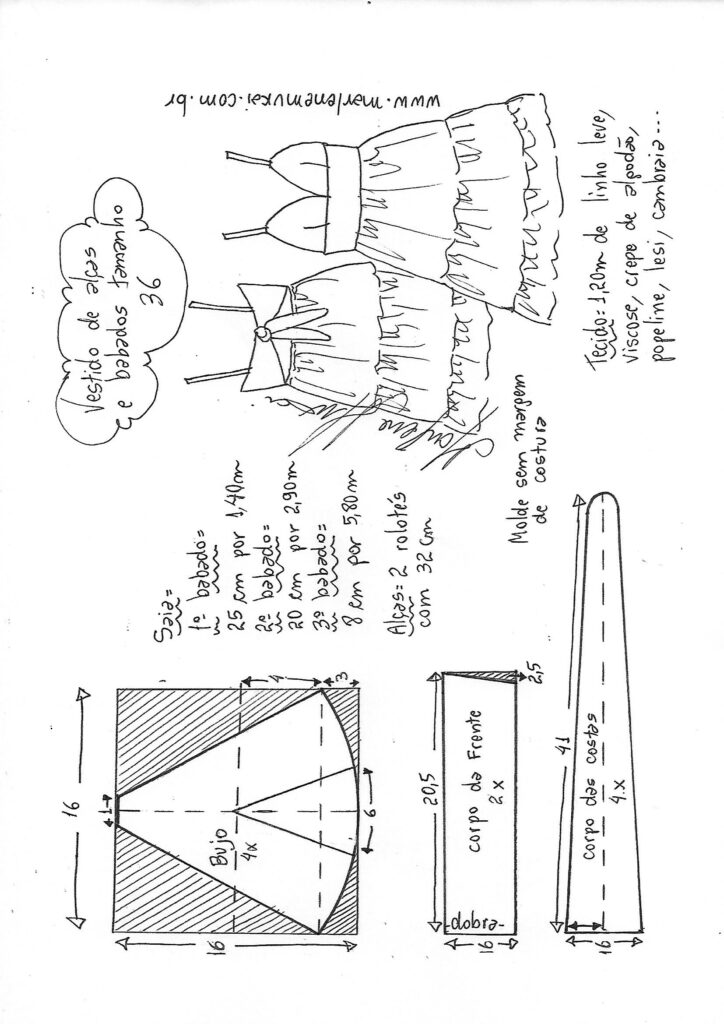 Vestido de alças
e babados tamanho
36
www.marlenemukai.com.br
Tecido= 1,20m de linho leve,
viscose, crepe de algodão,
popeline, lesi, cambraia...
Saia=
1º babado=
25 cm por 1,40m
2º babado=
20 cm por 2,90m
3º babado=
8 cm por 5,80m
Alças= 2 rolotés
com 32 cm
Molde sem margem
de costura
16
1
4
3
Bujo
4x
6
16
20,5
2,5
corpo da frente
2x
-dobra-
16
41
corpo das costas
4.x
16